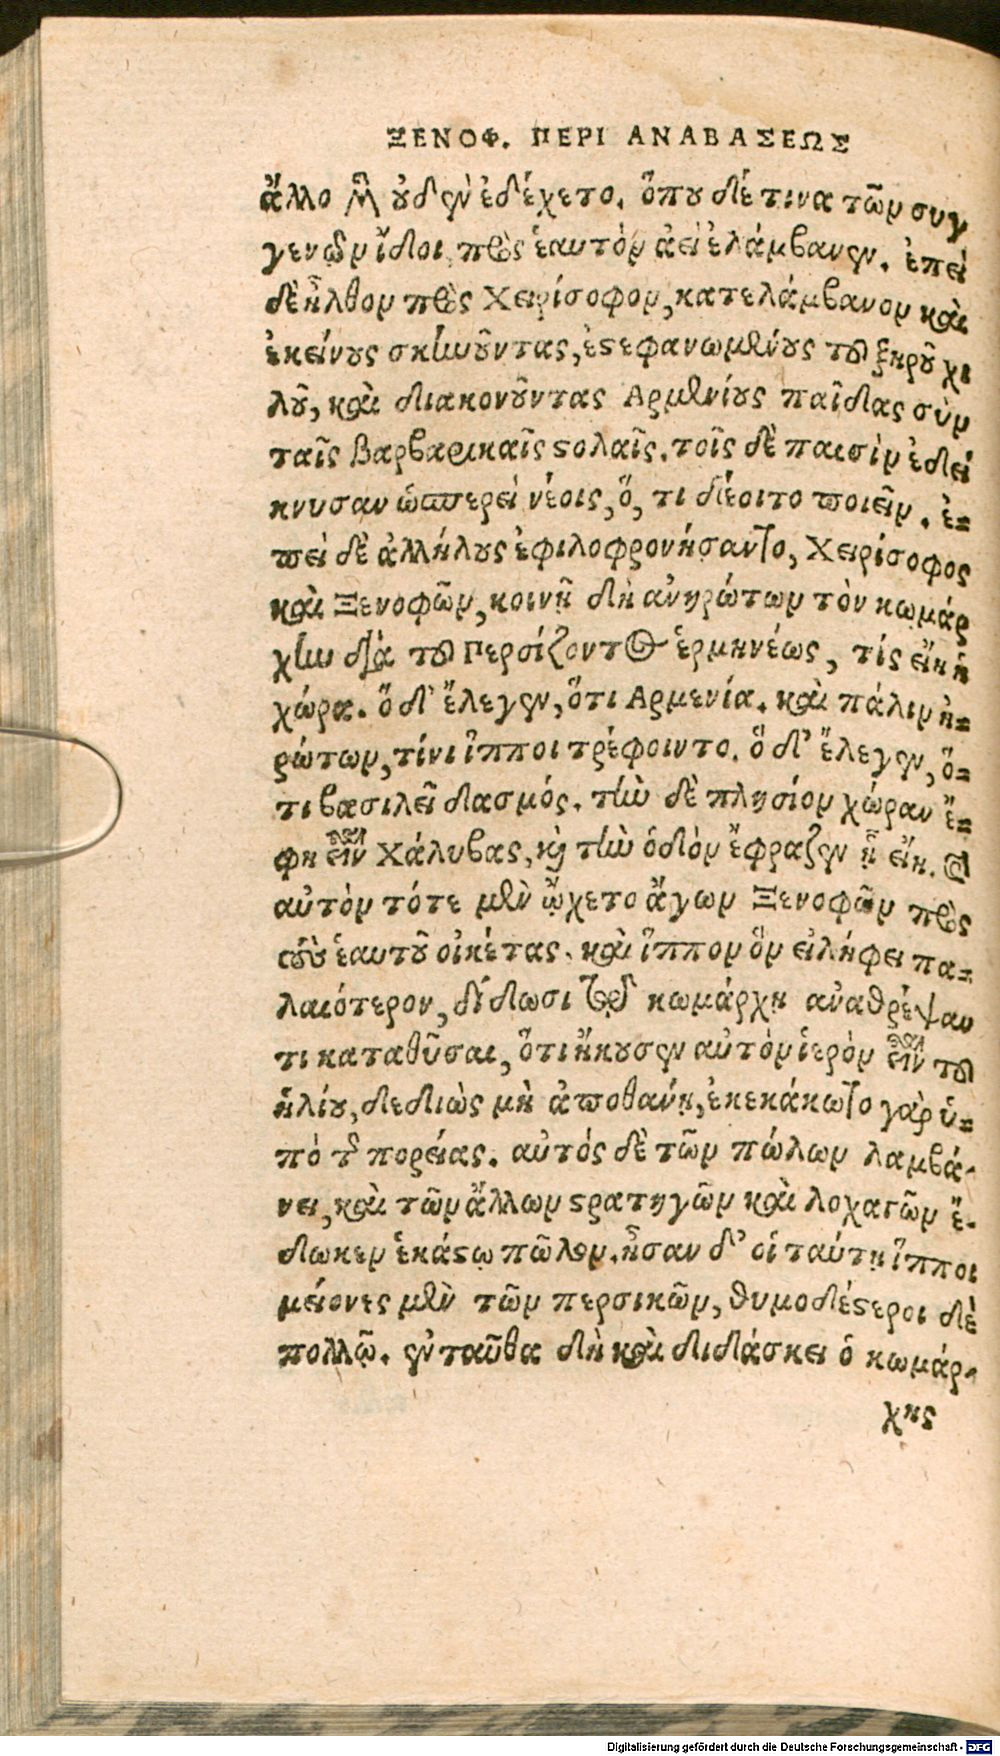 ΞΕΝΟΦ. ΠΕΡΙ ΑΝΑΒΑΣΕΩΣ
ἄλλο μὲν οὐδὲν ἐδέχετο. ὅπου δέ τινα τῶν συγ
γενῶν ἴδοι, πρὸς ἑαυτὸν ἀεὶ ἐλάμβανεν. ἐπεὶ
δὲ ἦλθον πρὸς Χειρίσοφον, κατελάμβανον καὶ
ἐκείνους σκηνοῦντας, ἐστεφανωμένους τοῦ ξηροῦ χι
λοῦ, καὶ διακονοῦντας Αρμενίους παῖδας σὺν
ταῖς βαρβαρικαῖς στολαῖς. τοῖς δὲ παισὶν ἐδεί
κνυσαν ὡσπερεὶ νέοις, ὅ, τι δέοιτο ποιεῖν. ἐ-
πεὶ δὲ ἀλλήλους ἐφιλοφρονήσαντο, Χειρίσοφος
καὶ Ξενοφῶν, κοινῇ δὴ ἀνηρώτων τὸν κωμάρ
χην διὰ τοῦ Περσίζοντος ἑρμηνέως, τίς εἴη ἡ
χώρα. ὅ δ' ἔλεγεν, ὅτι Αρμενία. καὶ πάλιν ἠ-
ρώτων, τίνι ἵπποι τρέφοιντο. ὅ δ' ἔλεγεν, ὅ-
τι βασιλεῖ δασμός. τὴν δὲ πλησίον χώραν ἔ-
φη εἶναι Χάλυβας, καὶ τὴν ὁδὸν ἔφραζεν ᾗ εἴη. καὶ
αὐτὸν τότε μὲν ᾤχετο ἄγων Ξενοφῶν πρὸς
τοὺς ἑαυτοῦ οἰκέτας. καὶ ἵππον ὃν εἰλήφει πα-
λαιότερον, δίδωσι τῷ κωμάρχῃ ἀναθρέψαν
τι καταθῦσαι, ὅτι ἤκουσεν αὐτὸν ἱερὸν εἶναι τοῦ
ἡλίου, δεδιὼς μὴ ἀποθανῃ, ἐκεκάκωτο γὰρ ὑ-
πὸ τῆς πορείας. αὐτός δὲ τῶν πώλων λαμβά-
νει, καὶ τῶν ἄλλων στρατηγῶν καὶ λοχαγῶν ἔ-
δωκεν ἑκάστῳ πῶλον. ἦσαν δ' οἱ ταύτῃ ἵπποι
μείονες μὲν τῶν περσικῶν, θυμοδέστεροι δὲ
πολλῷ. ἐνταῦθα δὴ καὶ διδάσκει ὁ κωμάρ-
χης
Digitalisierung gefördert durch die Deutsche Forschungsgemeinschaft - DFG